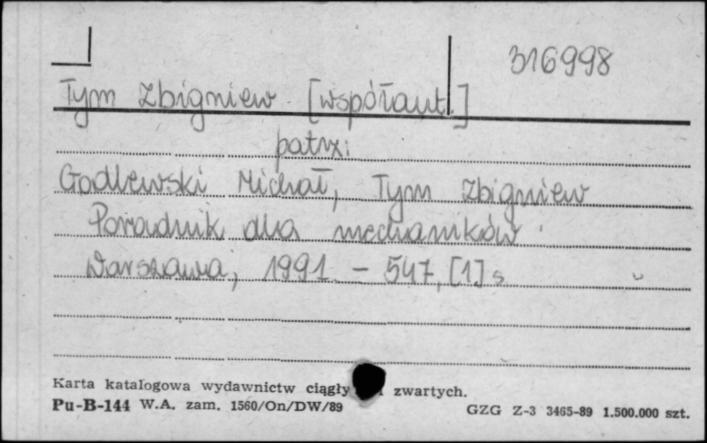 316998
Tym Zbigniew [współaut.]
patrz:
Godlewski Michał, Tym Zbigniew
Poradnik dla mechaników
Warszawa, 1991 - 547, [1] s
Karta katalogowa wydawnictw ciągły zwartych.
Pu-B-144 W.A. zam. 1560/On/DW/89 GZG Z-3 3465-89 1.500.000 szt.